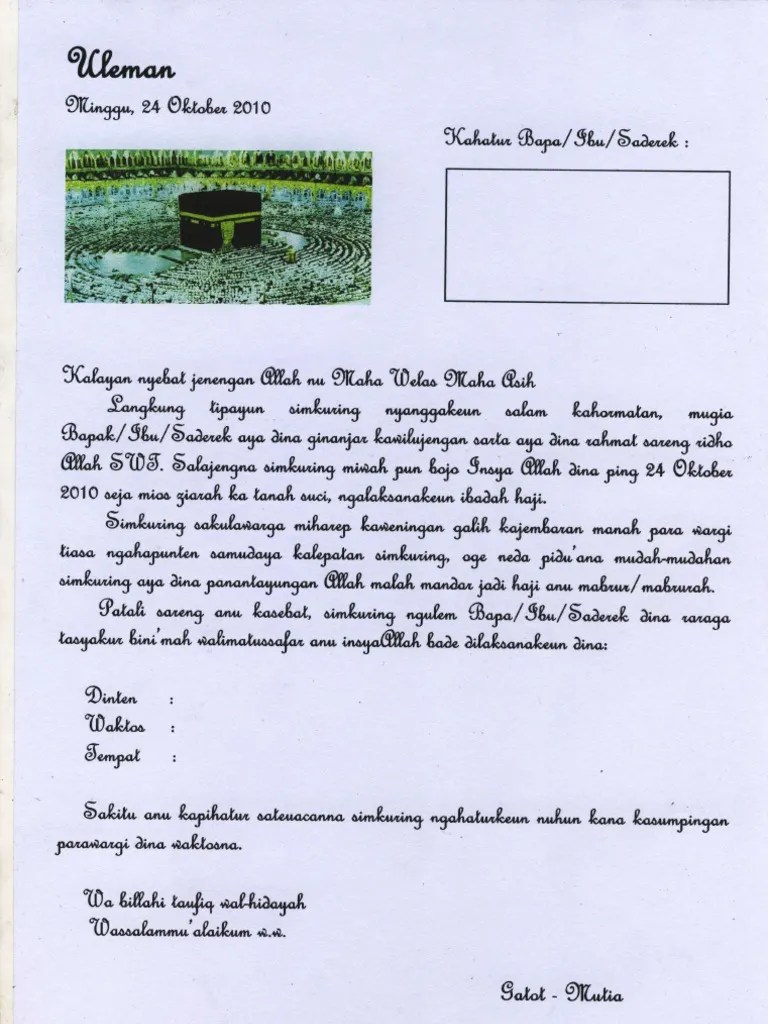 Uleman
Minggu, 24 Oktober 2010
Kahatur Bapa/Ibu/Saderek :
Kalayan nyebat jenengan Allah nu Maha Welas Maha Asih
Langkung tipayun simkuring nyanggakeun salam kahormatan, mugia
Bapak/Ibu/Saderek aya dina ginanjar kawilujengan sarta aya dina rahmat sareng ridho
Allah SWT. Salajengna simkuring miwah pun bojo Insya Allah dina ping 24 Oktober
2010 seja mios ziarah ka tanah suci, ngalaksanakeun ibadah haji.
Simkuring sakulawarga miharep kaweningan galih kajembaran manah para wargi
tiasa ngahapunten samudaya kalepatan simkuring, oge neda pidu'ana mudah-mudahan
simkuring aya dina panantayungan Allah malah mandar jadi haji anu mabrur/mabrurah.
Patali sareng anu kasebat, simkuring ngulem Bapa/Ibu/Saderek dina raraga
tasyakur bini'mah walimatussafar anu insyaAllah bade dilaksanakeun dina:
Dinten :
Waktos :
Tempat :
Sakitu anu kapihatur sateuacanna simkuring ngahaturkeun nuhun kana kasumpingan
parawargi dina waktosna.
Wa billahi taufiq wal-hidayah
Wassalammu'alaikum w.w.
Gatot - Mutia